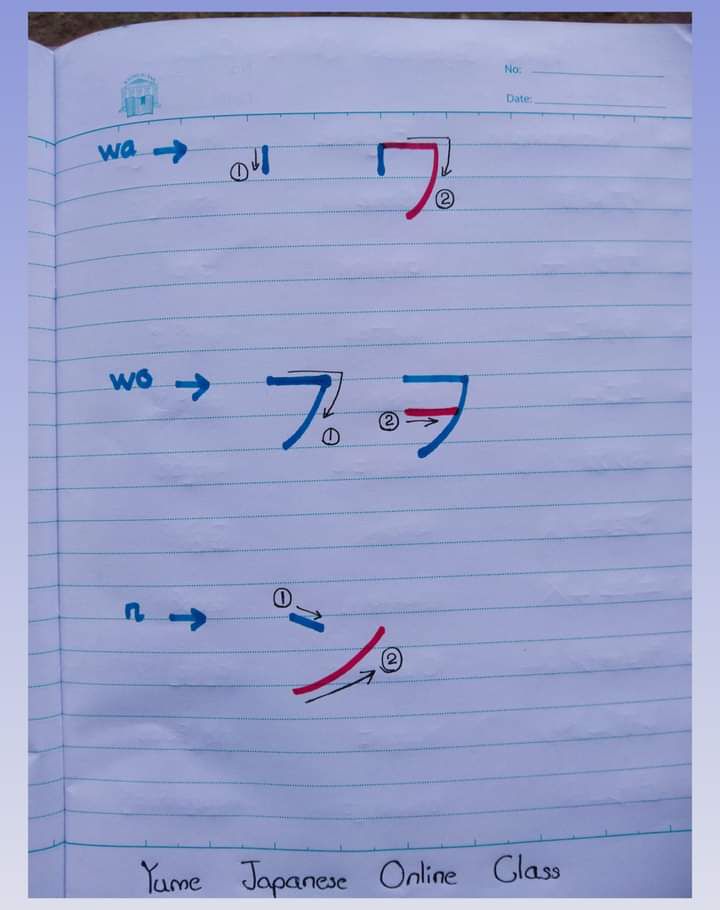 No:
Date:
wa → ① ワ ②
wo → フ ① ヲ ②
n → ① ン ②
Yume Japanese Online Class